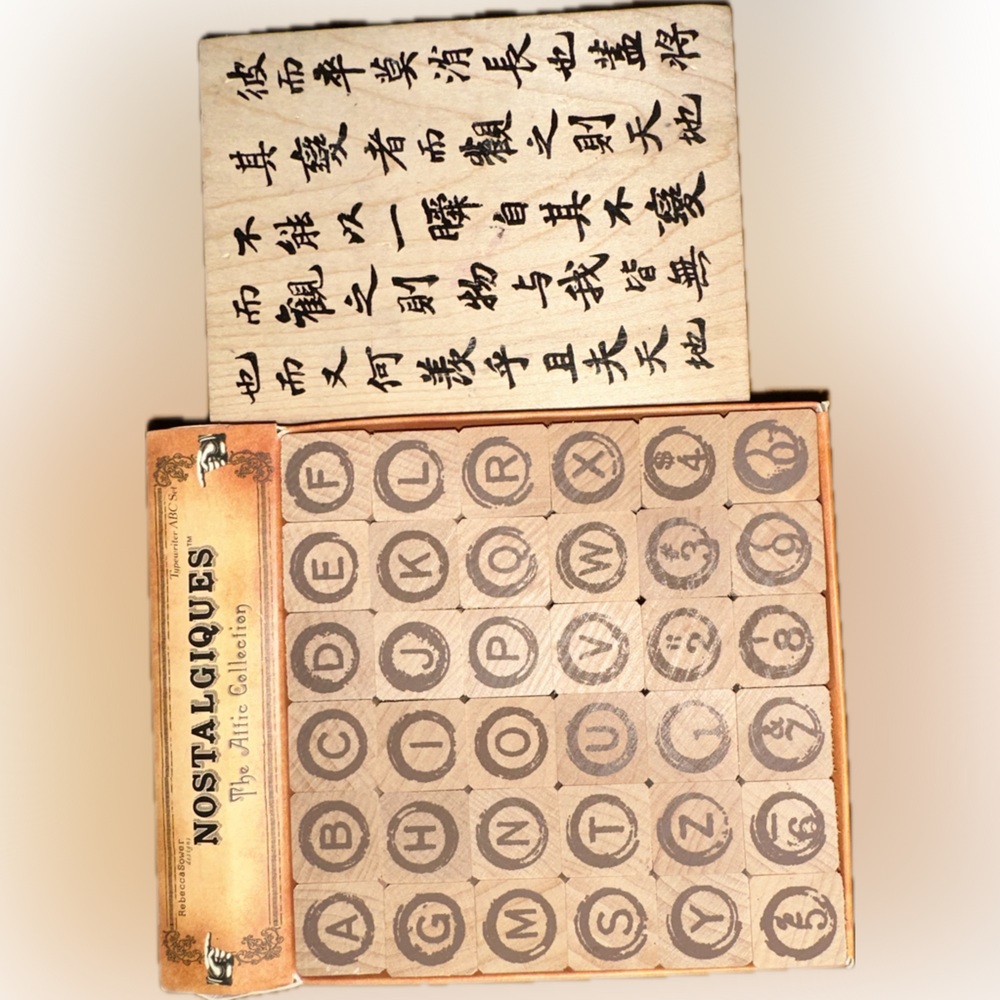 彼而卒莫消長也蓋將
其變者而觀之則天地
不能以一瞬自其不變
而觀之則物与我皆無
也而又何羨乎且夫天地
RebeccaSower
designs
Typewriter ABC Set
NOSTALGIQUES™
The Attic Collection
A B C D E F
G H I J K L
M N O P Q R
S T U V W X
Y Z 1 "2 #3 $4
%5 _6 &7 '8 (9 )0